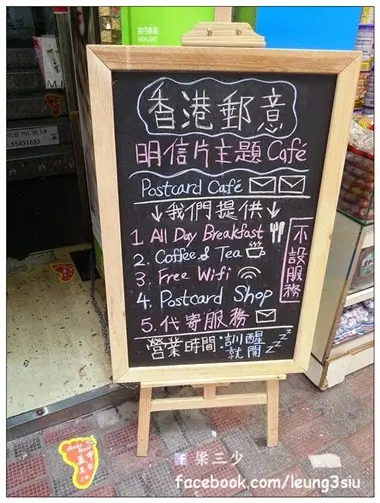 香港郵意
明信片主題 Café
Postcard Café
↓我們提供↓
1. All Day Breakfast
2. Coffee & Tea
3. Free Wifi
4. Postcard Shop
5. 代寄服務
不設服務
營業時間:訓醒就開 zzz
梁三少
facebook.com/leung3siu